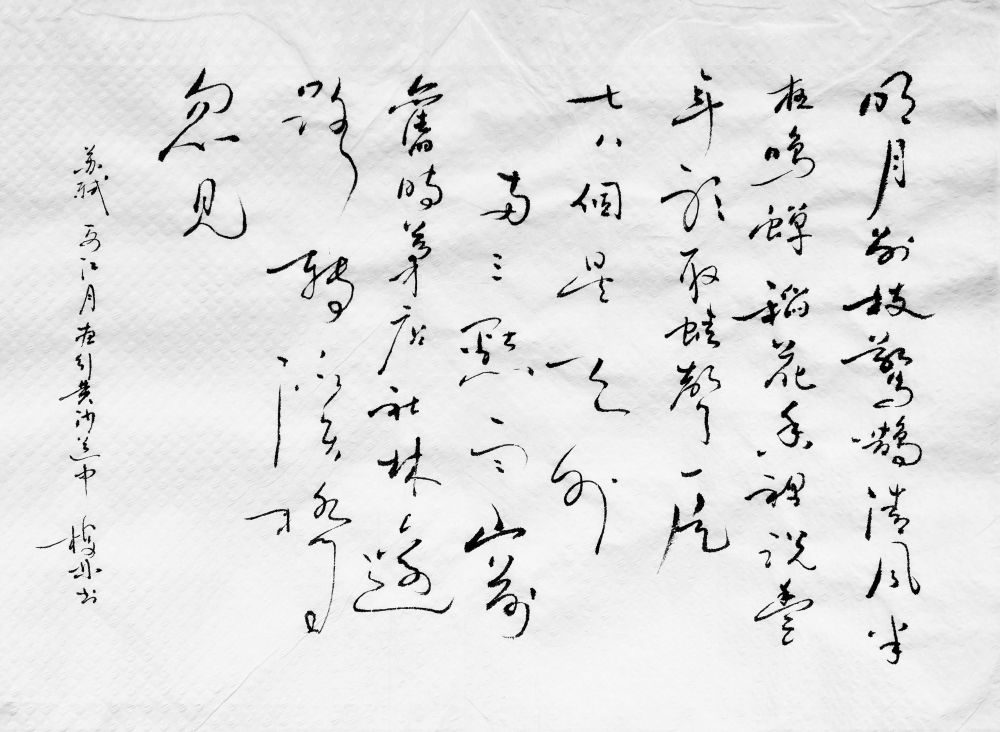 明月別枝驚鵲清風半
夜鳴蟬稻花香裡說豐
年聽取蛙聲一片
七八個星天外
兩三點雨山前
舊時茅店社林邊
路轉溪橋
忽見
蘇軾 西江月夜行黃沙道中 书